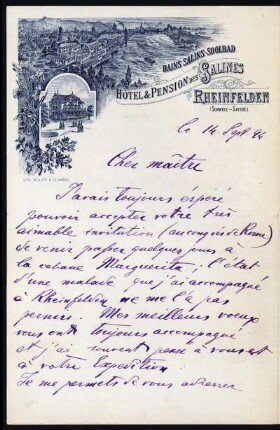 BAINS SALINS-SOOLBAD
HOTEL & PENSION DES SALINES
RHEINFELDEN
(SCHWEIZ-SUISSE)
le 14 Sept. 94
Cher maître
J'avais toujours espéré
pouvoir accepter votre très
aimable invitation (au congrès de Rome)
de venir passer quelques jours à
la cabane Marguerita ; l'état
d'une malade que j'ai accompagné
à Rheinfelden ne me l'a pas
permis. Mes meilleurs voeux
vous ont toujours accompagné
et j'ai souvent pensé à vous et
à votre Expedition.
Je me permets de vous adresser